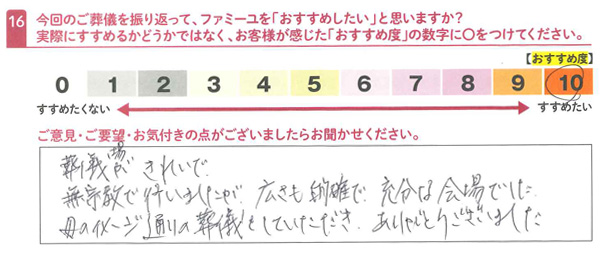 16 今回のご葬儀を振り返って、ファミーユを「おすすめしたい」と思いますか？
実際にすすめるかどうかではなく、お客様が感じた「おすすめ度」の数字に〇をつけてください。
【おすすめ度】
0 1 2 3 4 5 6 7 8 9 10
すすめたくない すすめたい
ご意見・ご要望・お気付きの点がございましたらお聞かせください。
葬儀場がきれいで
無宗教で行いましたが、広さも 的確で、充分な会場でした
母のイメージ通りの葬儀をしていただき、ありがとうございました